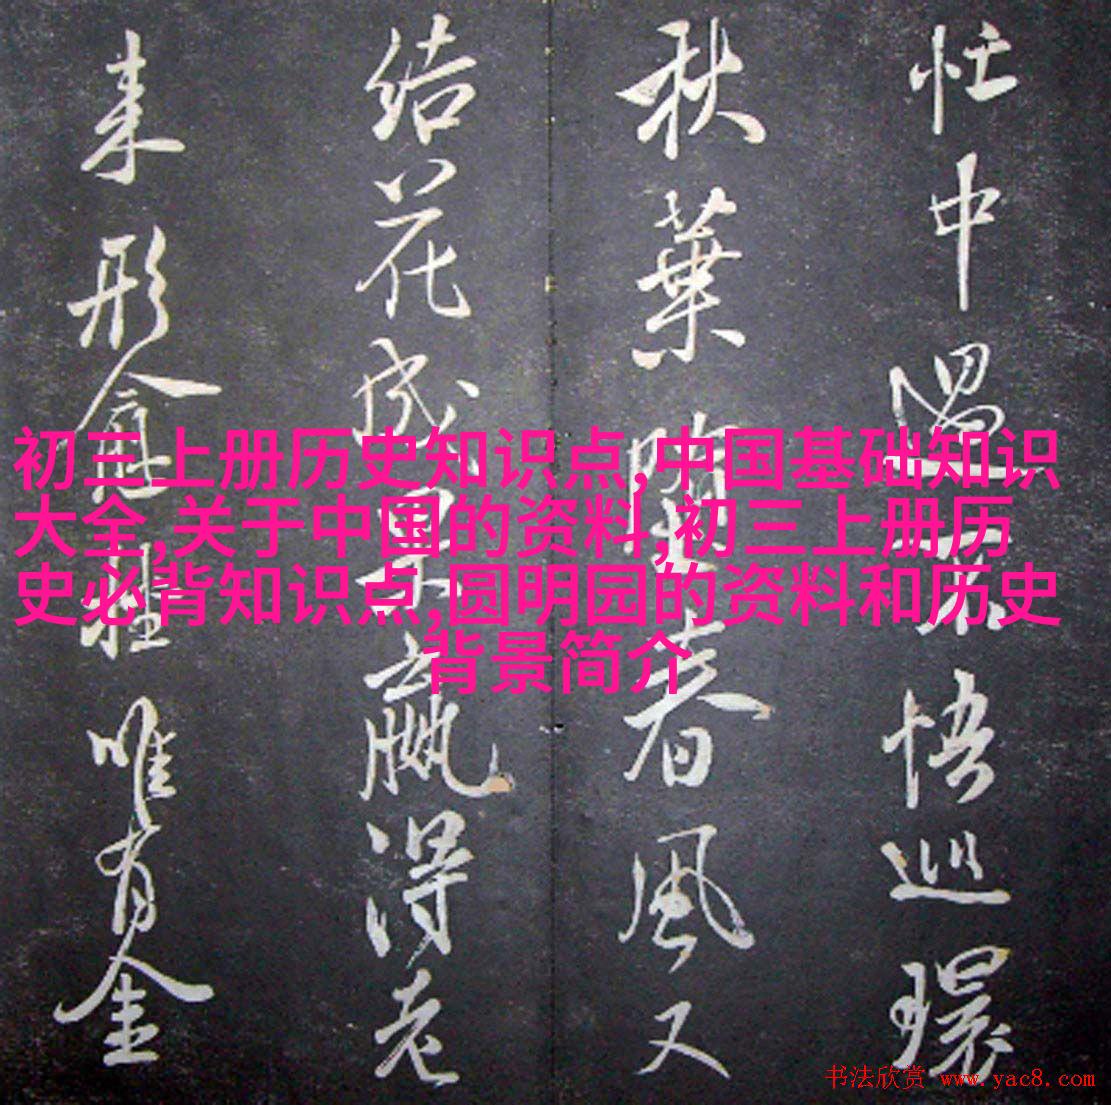 忙中悟巡環
秋葉春風又
结花成赢得老
来形唯有金
初三上册历史知识点,中国基础知识
大全,关于中国的资料,初三上册历
史必背知识点,圆明园的资料和历史
背景简介
书法欣赏 www.yac8.com